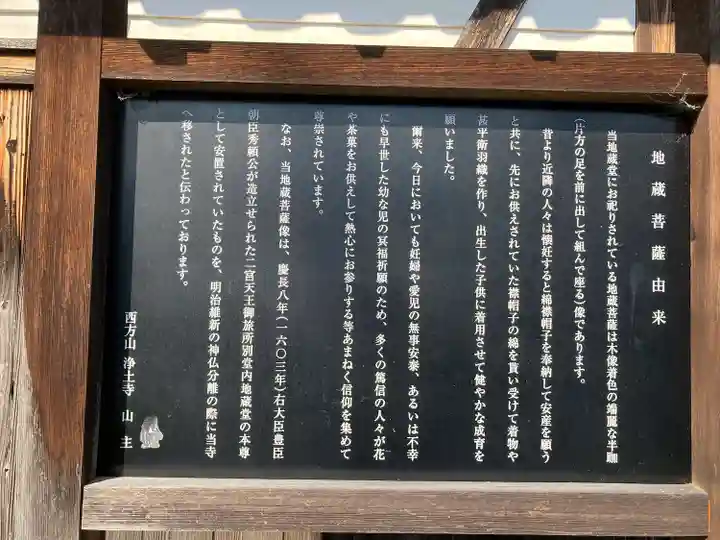 地蔵菩薩由来
当地蔵堂にお祀りされている地蔵菩薩は木像着色の端麗な半跏
(片方の足を前に出して組んで座る)像であります。
昔より近隣の人々は懐妊すると綿襟帽子を奉納して安産を願う
と共に、先にお供えされていた襟帽子の綿を貰い受けて着物や
甚平衛羽織を作り、出生した子供に着用させて健やかな成育を
願いました。
爾来、今日においても妊婦や愛児の無事安泰、あるいは不幸
にも早世した幼な児の冥福祈願のため、多くの篤信の人々が花
や茶菓をお供えして熱心にお参りする等あまねく信仰を集めて
尊崇されています。
なお、当地蔵菩薩像は、慶長八年(一六〇三年)右大臣豊臣
朝臣秀頼公が造立せられた二宮天王御旅所別堂内地蔵堂の本尊
として安置されていたものを、明治維新の神仏分離の際に当寺
へ移されたと伝わっております。
西方山 浄土寺 山主